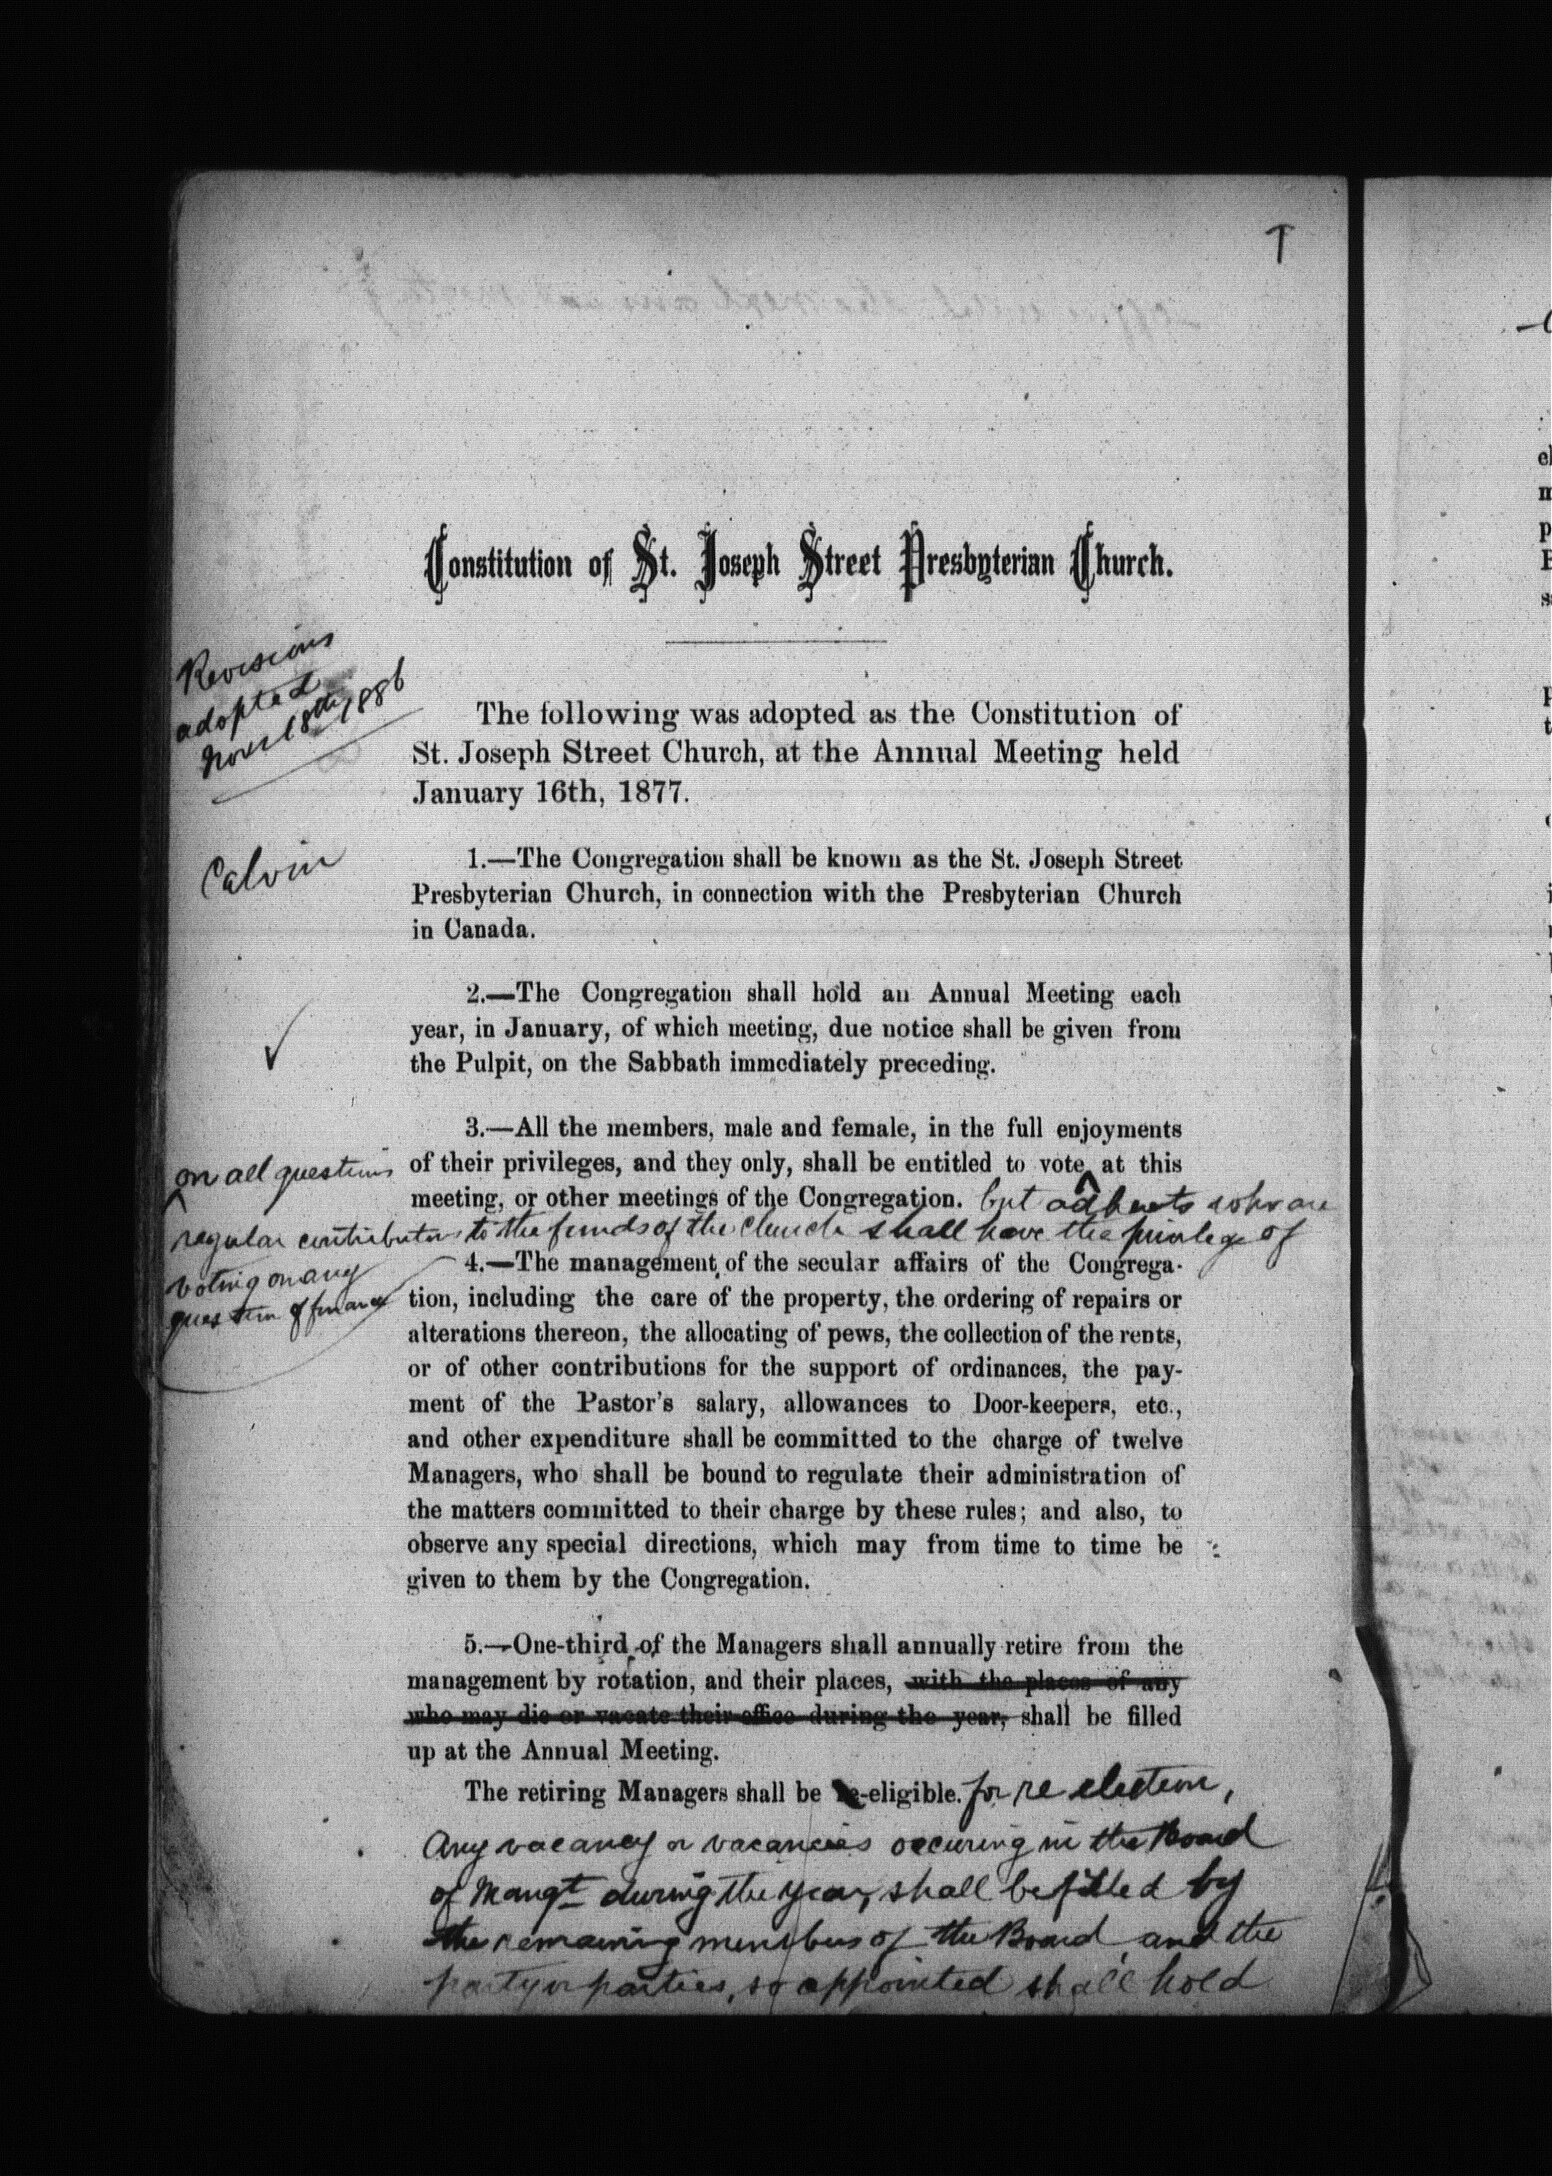 Constitution of St. Joseph Street Presbyterian Church.
Revisions
adopted
Nover 18th 1886
The following was adopted as the Constitution of
St. Joseph Street Church, at the Annual Meeting held
January 16th, 1877.
Calvin
1.—The Congregation shall be known as the St. Joseph Street
Presbyterian Church, in connection with the Presbyterian Church
in Canada.
2.—The Congregation shall hold an Annual Meeting each
year, in January, of which meeting, due notice shall be given from
the Pulpit, on the Sabbath immediately preceding.
3.—All the members, male and female, in the full enjoyments
on all questions
of their privileges, and they only, shall be entitled to vote at this
meeting, or other meetings of the Congregation. but adherents who are
regular contributors to the funds of the Church shall have the privilege of
voting on any
question of finance
4.—The management of the secular affairs of the Congrega-
tion, including the care of the property, the ordering of repairs or
alterations thereon, the allocating of pews, the collection of the rents,
or of other contributions for the support of ordinances, the pay-
ment of the Pastor's salary, allowances to Door-keepers, etc.,
and other expenditure shall be committed to the charge of twelve
Managers, who shall be bound to regulate their administration of
the matters committed to their charge by these rules; and also, to
observe any special directions, which may from time to time be
given to them by the Congregation.
5.—One-third of the Managers shall annually retire from the
management by rotation, and their places, with the places of any
who may die or vacate their office during the year, shall be filled
up at the Annual Meeting.
The retiring Managers shall be re-eligible. for re election,
Any vacancy or vacancies occuring in the Board
of Mangt during the year, shall be filled by
the remaining members of the Board, and the
party or parties, so appointed shall hold